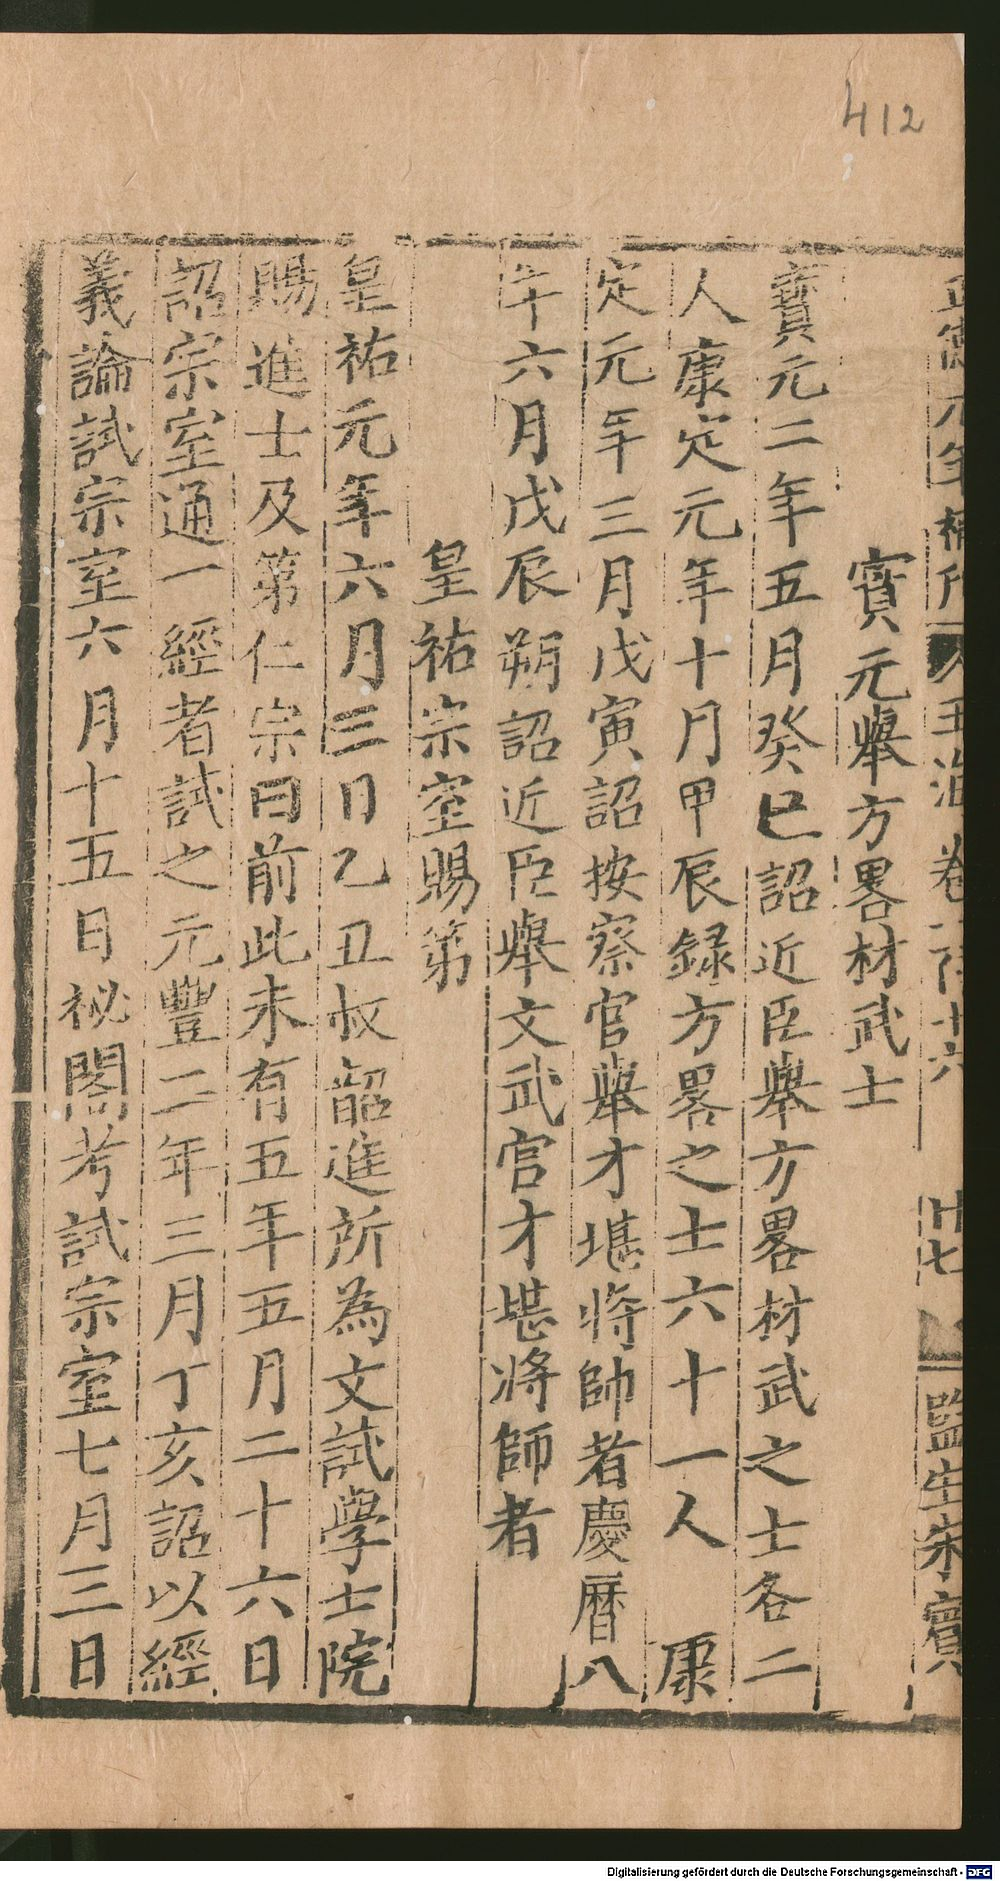 412
正德元年補刊
玉海卷一百十六
廿七
監生宋寶
寶元舉方畧材武士
寶元二年五月癸巳詔近臣舉方畧材武之士各二
人康定元年十月甲辰録方畧之士六十一人 康
定元年三月戊寅詔按察官舉才堪將帥者慶曆八
年六月戊辰朔詔近臣舉文武官才堪將師者
皇祐宗室賜第
皇祐元年六月三日乙丑叔韶進所為文試學士院
賜進士及第仁宗曰前此未有五年五月二十六日
詔宗室通一經者試之元豐二年三月丁亥詔以經
義論試宗室六月十五日祕閣考試宗室七月三日
Digitalisierung gefördert durch die Deutsche Forschungsgemeinschaft - DFG